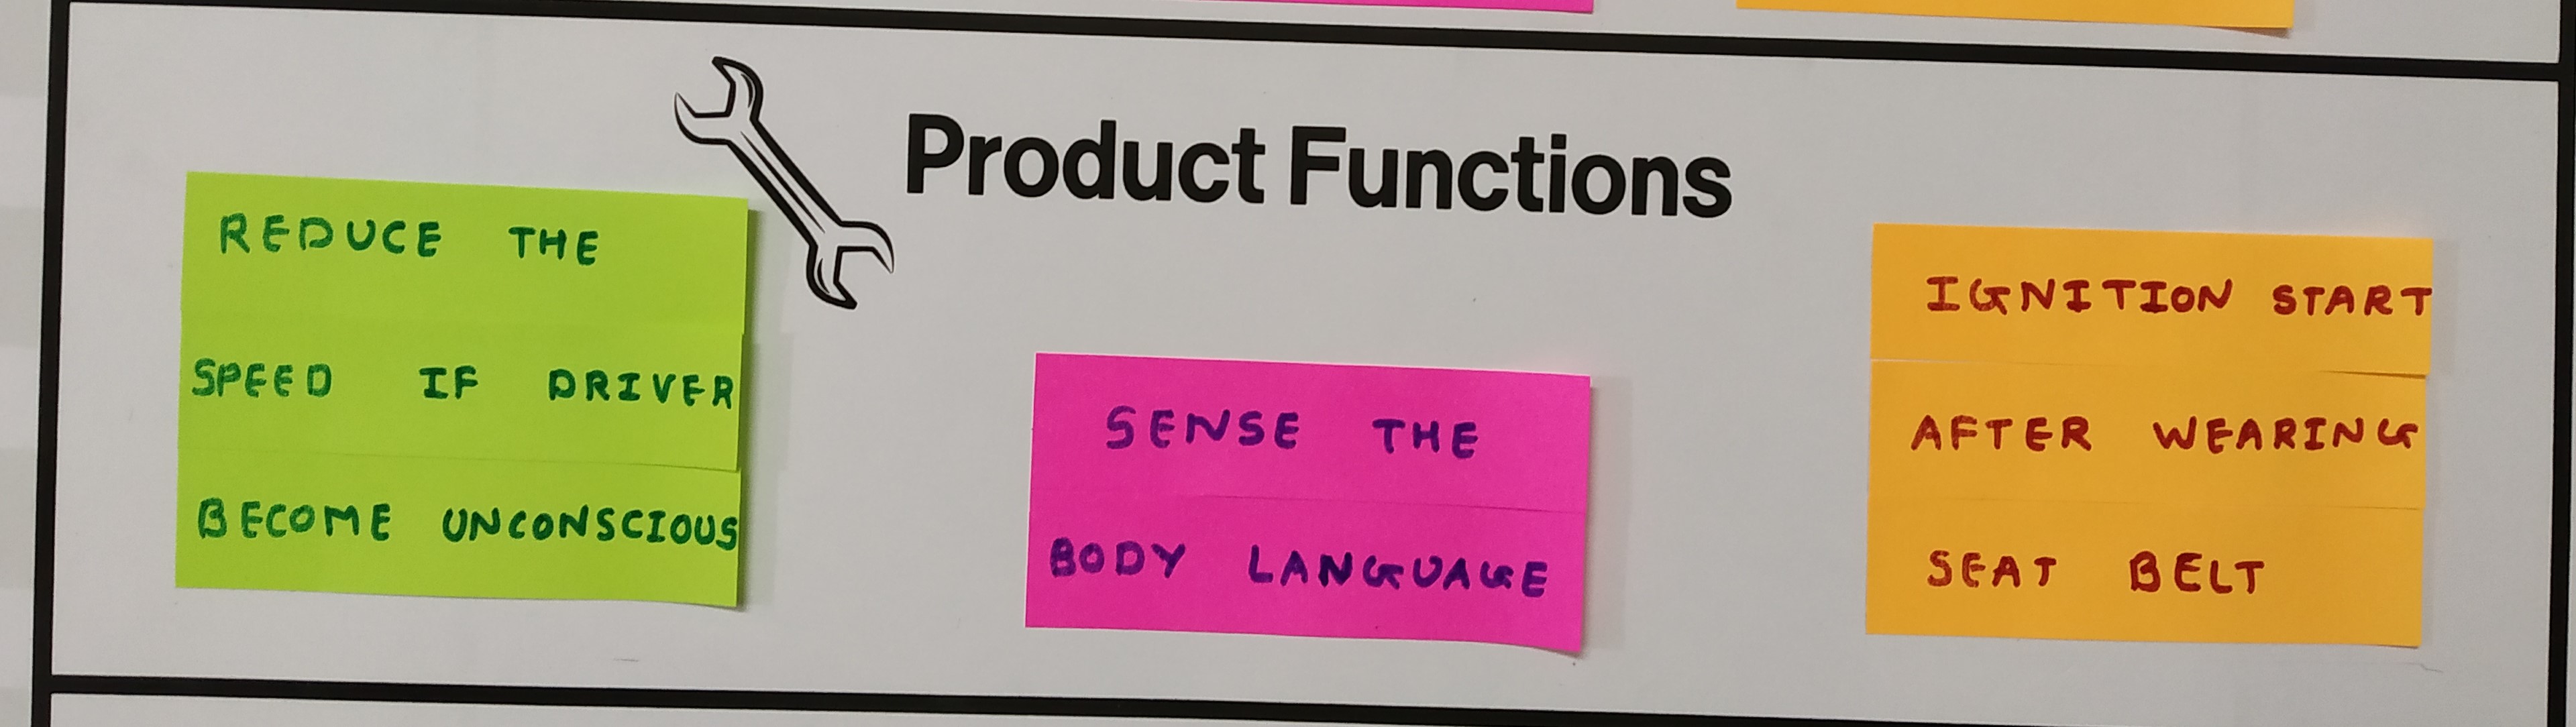 Product Functions
REDUCE THE
SPEED IF DRIVER
BECOME UNCONSCIOUS
SENSE THE
BODY LANGUAGE
IGNITION START
AFTER WEARING
SEAT BELT